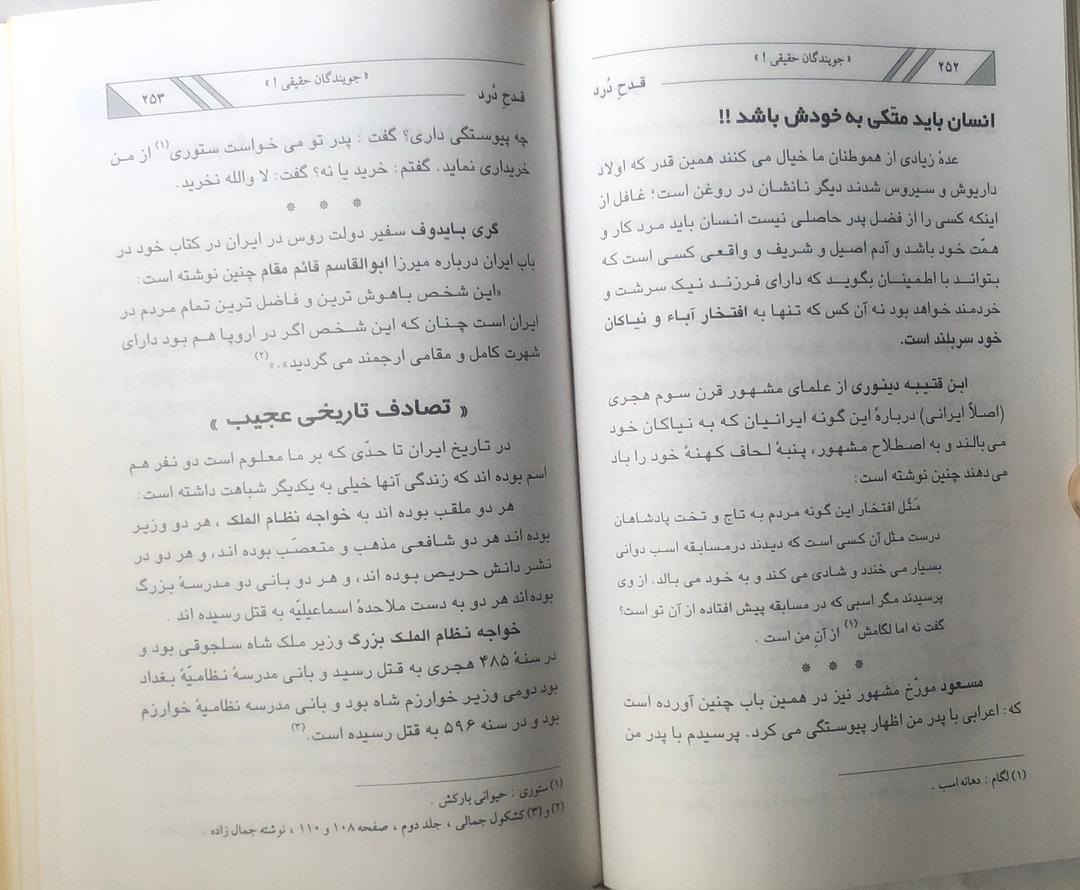 ۲۵۲
« جویندگان حقیقی ! »
قدحِ دُرد
انسان باید متّکی به خودش باشد !!
عدهٔ زیادی از هموطنان ما خیال می کنند همین قدر که اولاد
داریوش و سیروس شدند دیگر نانشان در روغن است؛ غافل از
اینکه کسی را از فضل پدر حاصلی نیست انسان باید مرد کار و
همّت خود باشد و آدم اصیل و شریف و واقعی کسی است که
بتواند با اطمینان بگوید که دارای فرزند نیک سرشت و
خردمند خواهد بود نه آن کس که تنها به افتخار آباء و نیاکان
خود سربلند است.
ابن قتیبه دینوری از علمای مشهور قرن سوم هجری
(اصلاً ایرانی) دربارهٔ این گونه ایرانیان که به نیاکان خود
می‌بالند و به اصطلاح مشهور، پنبهٔ لحاف کهنهٔ خود را باد
می‌دهند چنین نوشته است:
مَثَل افتخار این گونه مردم به تاج و تخت پادشاهان
درست مثل آن کسی است که دیدند درمسابقه اسب دوانی
بسیار می خندد و شادی می کند و به خود می بالد. از وی
پرسیدند مگر اسبی که در مسابقه پیش افتاده از آن تو است؟
گفت نه اما لگامش(۱) از آنِ من است .
* * *
مسعود مورّخ مشهور نیز در همین باب چنین آورده است
که: اعرابی با پدر من اظهار پیوستگی می کرد. پرسیدم با پدر من
(۱) لگام : دهانه اسب .
« جویندگان حقیقی ! »
۲۵۳
قدحِ دُرد
چه پیوستگی داری؟ گفت : پدر تو می خواست ستوری(۱) از من
خریداری نماید. گفتم: خرید یا نه؟ گفت: لا والله نخرید.
* * *
گری بایدوف سفیر دولت روس در ایران در کتاب خود در
باب ایران درباره میرزا ابوالقاسم قائم مقام چنین نوشته است:
«این شخص باهوش ترین و فاضل ترین تمام مردم در
ایران است چنان که این شخص اگر در اروپا هم بود دارای
شهرت کامل و مقامی ارجمند می گردید».»(۲)
« تصادف تاریخی عجیب »
در تاریخ ایران تا حدّی که بر ما معلوم است دو نفر هم
اسم بوده اند که زندگی آنها خیلی به یکدیگر شباهت داشته است:
هر دو ملقب بوده اند به خواجه نظام الملک ، هر دو وزیر
بوده اند هر دو شافعی مذهب و متعصّب بوده اند، و هر دو در
نشر دانش حریص بوده اند، و هر دو بانی دو مدرسهٔ بزرگ
بوده‌اند هر دو به دست ملاحدهٔ اسماعیلیّه به قتل رسیده اند .
خواجه نظام الملک بزرگ وزیر ملک شاه سلجوقی بود و
در سنهٔ ۴۸۵ هجری به قتل رسید و بانی مدرسهٔ نظامیّهٔ بغداد
بود دومی وزیر خوارزم شاه بود و بانی مدرسه نظامیهٔ خوارزم
بود و در سنه ۵۹۶ به قتل رسیده است.(۳)
(۱) ستوری : حیوانی بارکش .
(۲) و (۳) کشکول جمالی ، جلد دوم ، صفحه ۱۰۸ و ۱۱۰ ، نوشته جمال زاده .